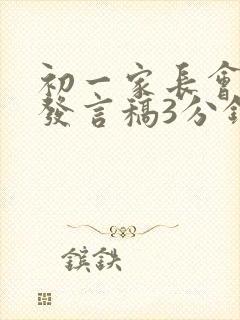 初一家長會
發言稿3分鐘
鑌鉄